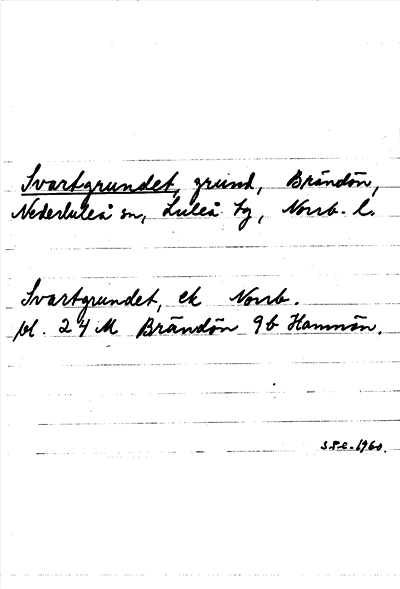 Svartgrundet, grund, Brändön,
Nederluleå sn, Luleå tg, Norrb. l.
Svartgrundet, ek Norrb.
bl. 24 M Brändön 9b Hamnön.
S.P.C. 1960.